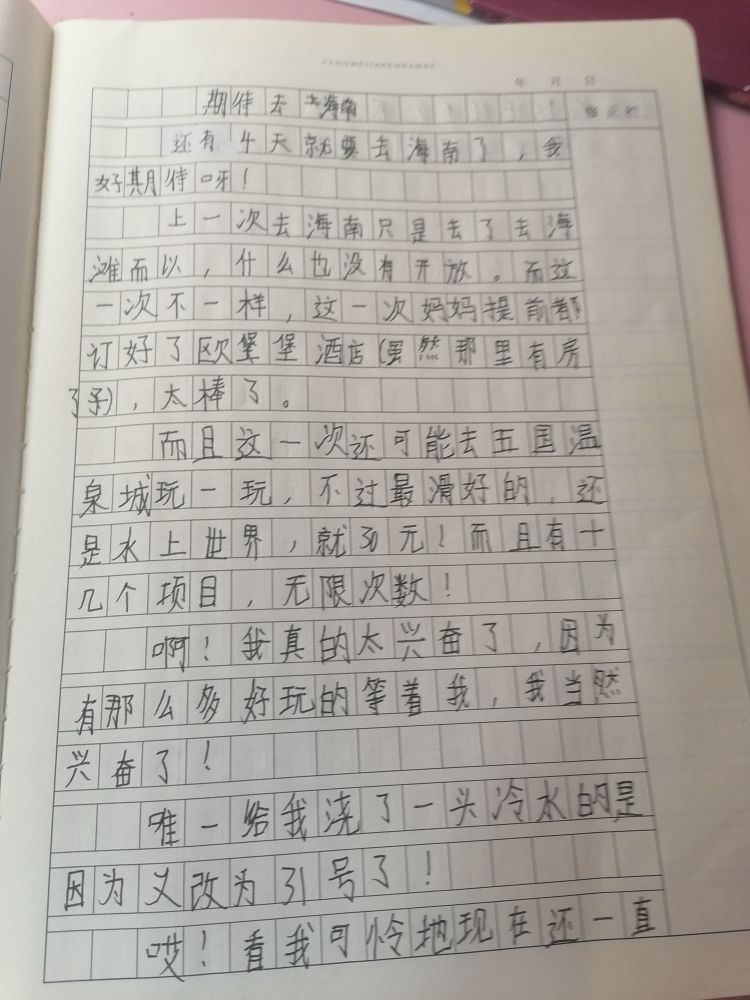 年 月 日
期待去海南
还有4天就要去海南了，我
好期待呀！
上一次去海南只是去了去海
滩而以，什么也没有开放。而这
一次不一样，这一次妈妈提前都
订好了欧堡堡酒店(虽然那里有房
了子)，太棒了。
而且这一次还可能去五国温
泉城玩一玩，不过最滑好的，还
是水上世界，就30元！而且有十
几个项目，无限次数！
啊！我真的太兴奋了，因为
有那么多好玩的等着我，我当然
兴奋了！
唯一给我浇了一头冷水的是
因为又改为31号了！
哎！看我可怜地现在还一直